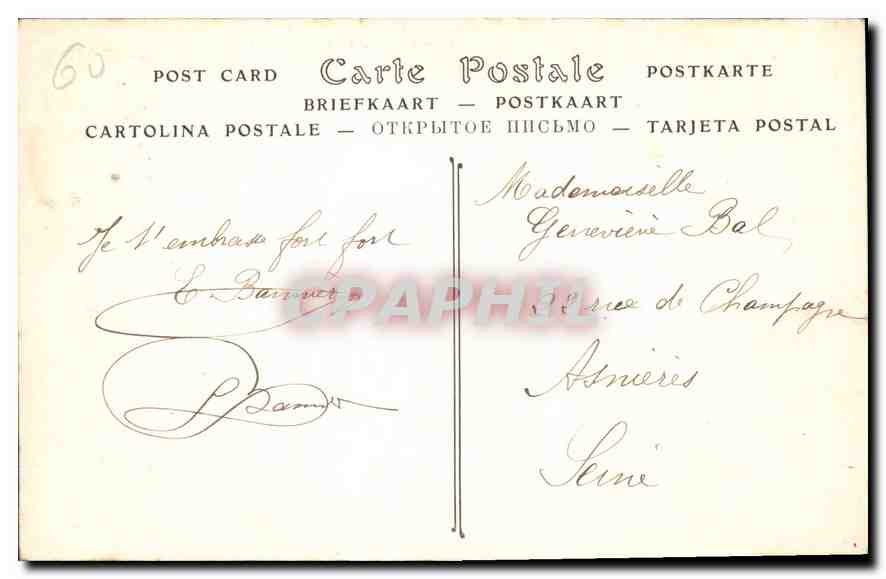 60
POST CARD Carte Postale POSTKARTE
BRIEFKAART — POSTKAART
CARTOLINA POSTALE — ОТКРЫТОЕ ПИСЬМО — TARJETA POSTAL
Je t'embrasse fort fort
E. Bannier
Mademoiselle
Geneviève Bal
32 rue de Champagne
Asnières
Seine
CPAPHIL